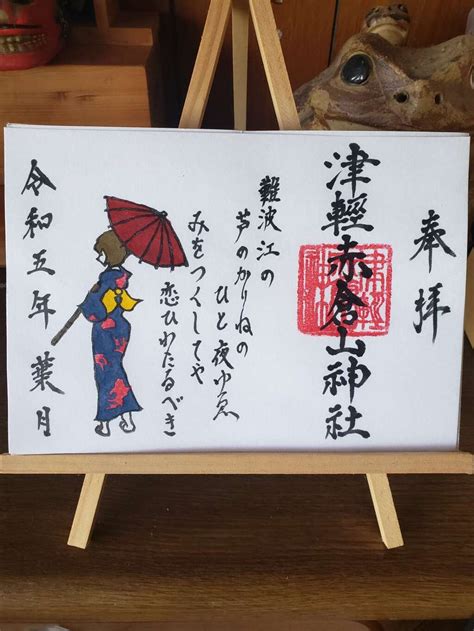 奉拝
津輕赤倉山神社
難波江の
芦のかりねの
ひと夜ゆゑ
みをつくしてや
恋ひわたるべき
令和五年葉月